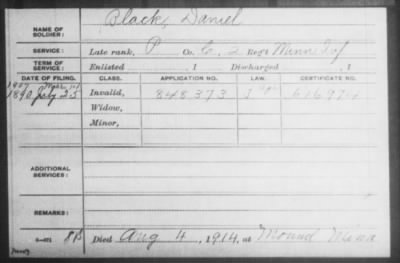 Black, Daniel
NAME OF SOLDIER:
SERVICE: Late rank, P Co. C, 2 Reg't Minn Inf
TERM OF SERVICE: Enlisted , 1 Discharged , 1
DATE OF FILING. CLASS. APPLICATION NO. LAW. CERTIFICATE NO.
1907 Mar
1890 July 25 Invalid, 848373 J 616974
Widow,
Minor,
ADDITIONAL SERVICES:
REMARKS:
Died Aug 4, 1914, at Mound Minn